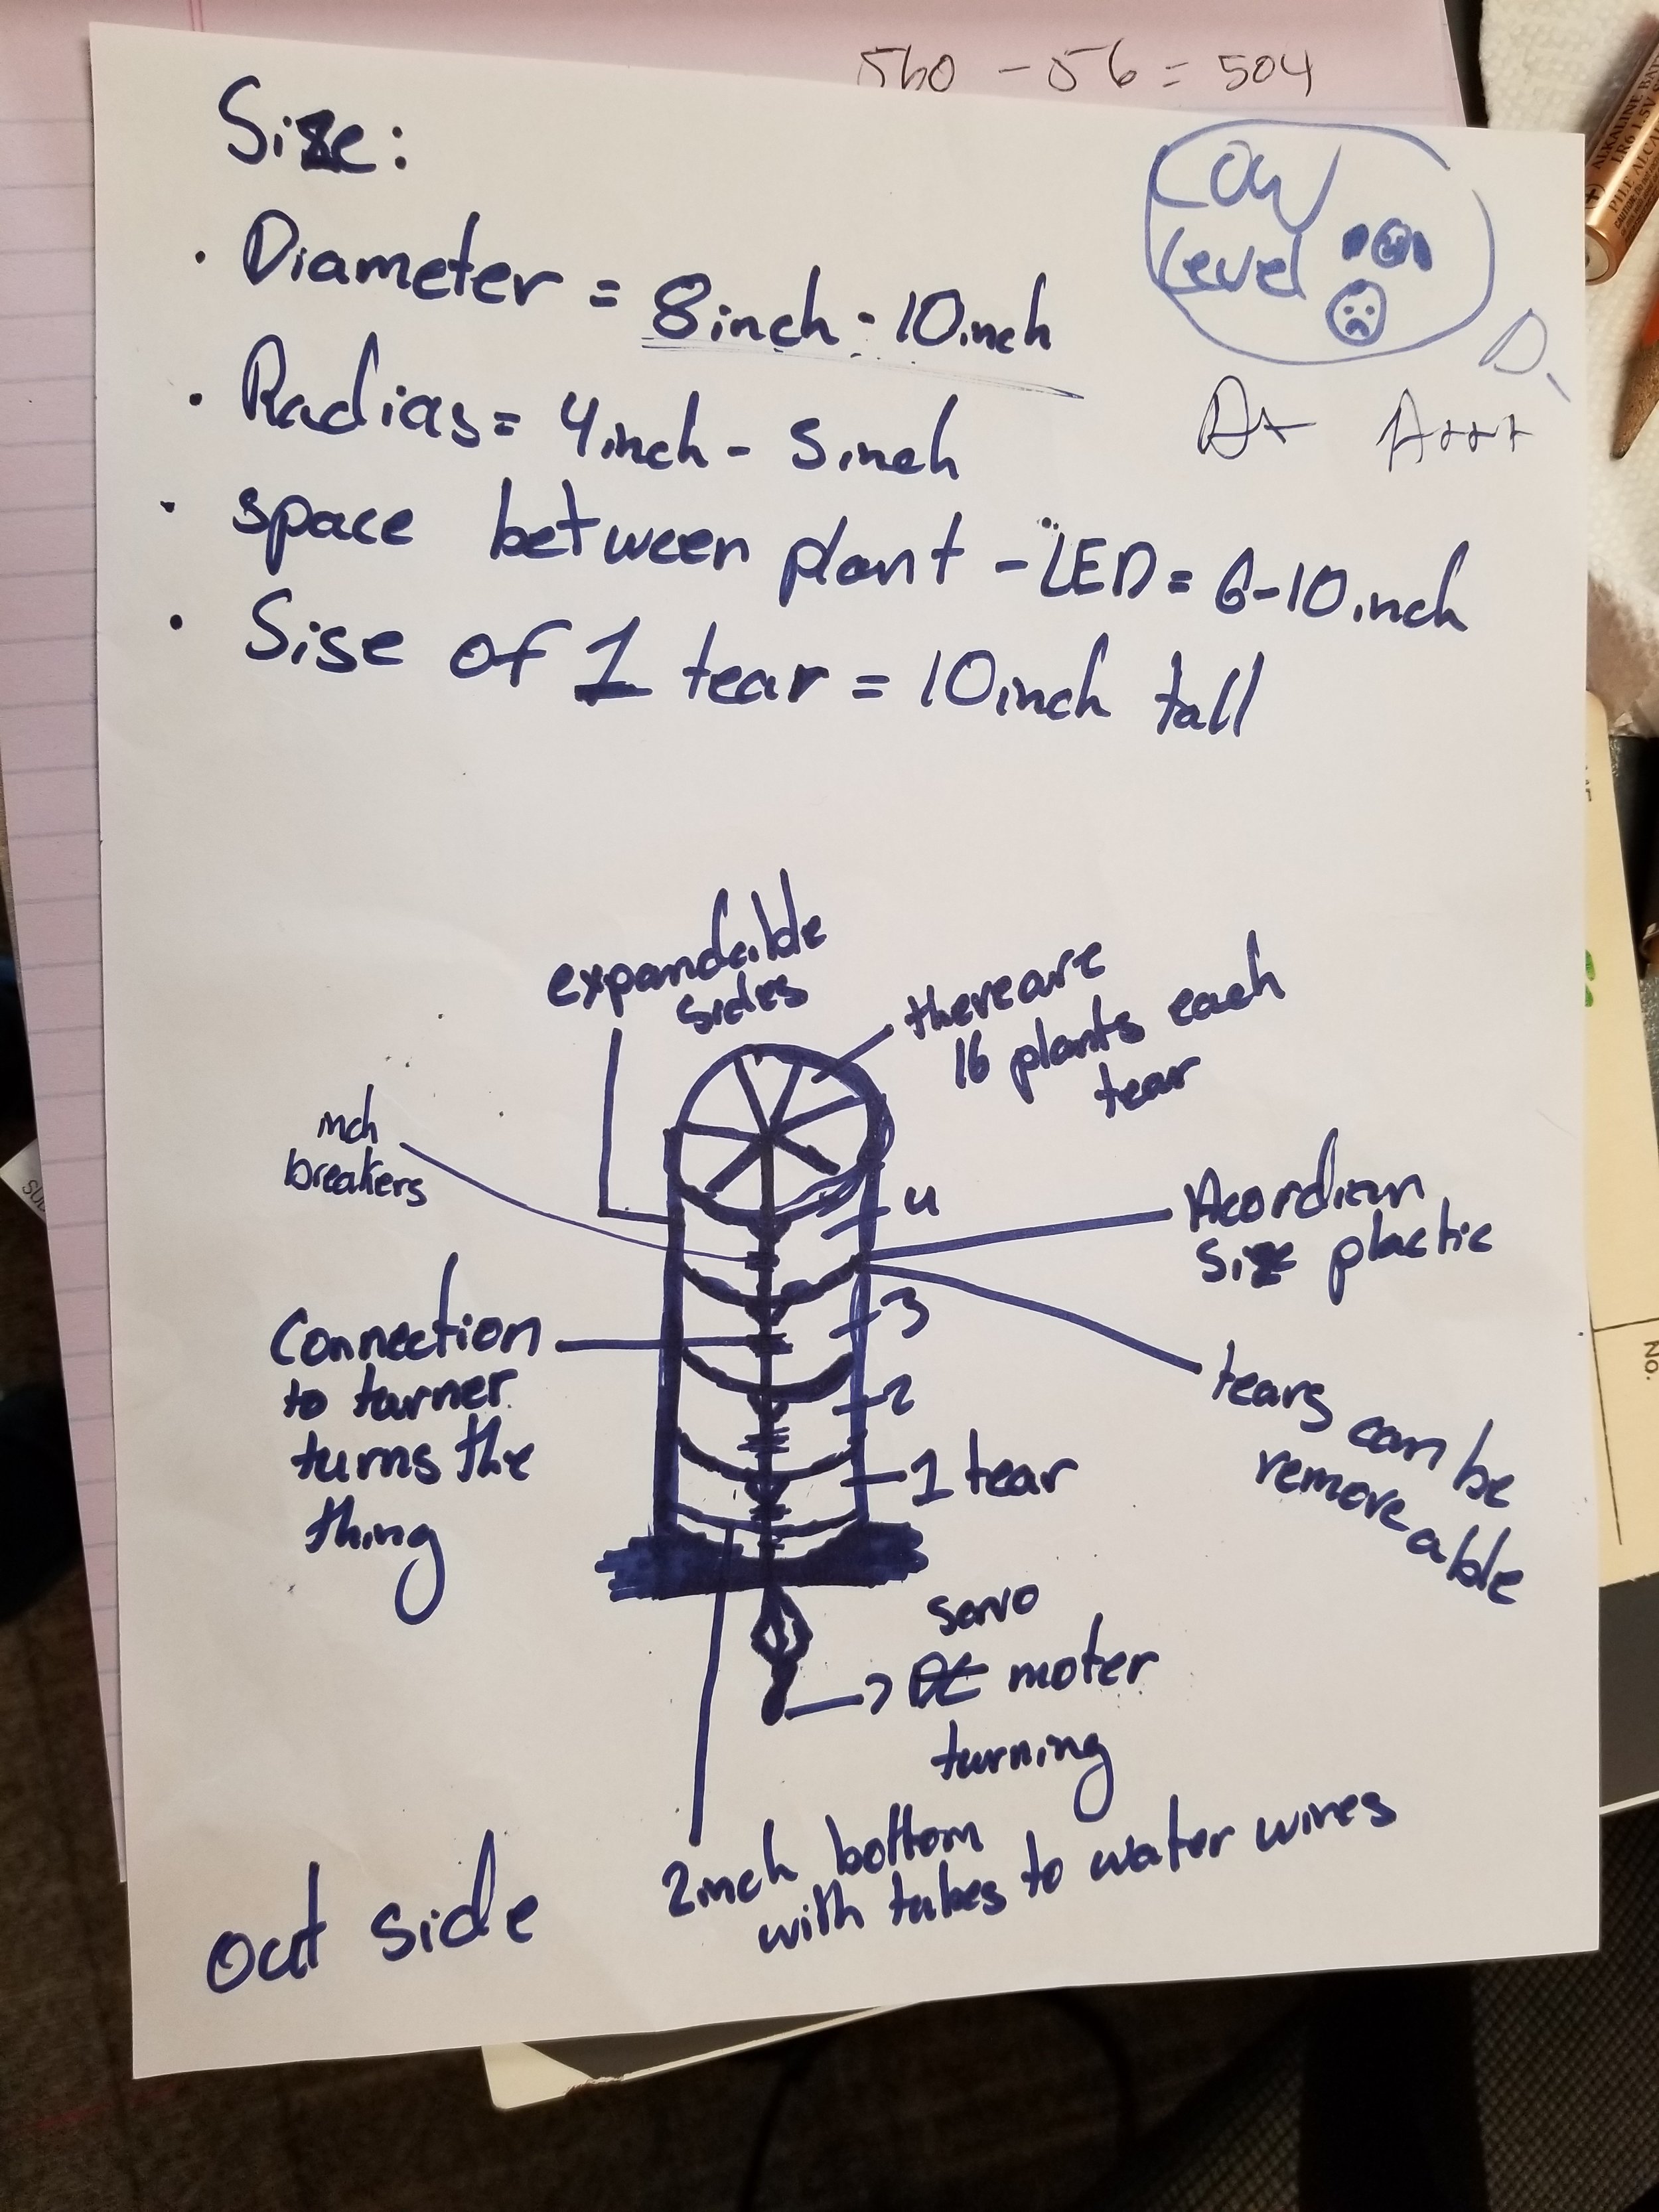 560 - 56 = 504
Size:
Low
Level
· Diameter = 8inch - 10inch
D
A+ A+++
· Radias = 4inch - 5inch
· space between plant - LED = 6-10inch
· Sise of 1 tear = 10inch tall
expandaible
sides
there are
16 plants each
tear
mch
breakers
4
Acordian
size plastic
3
Connection
to turner
turns the
thing
2
1 tear
tears can be
removeable
servo
DC moter
turning
2inch bottom
with tubes to water wires
out side
ALKALINE BAT
LR6 1.5V
PILE ALCAL
No.